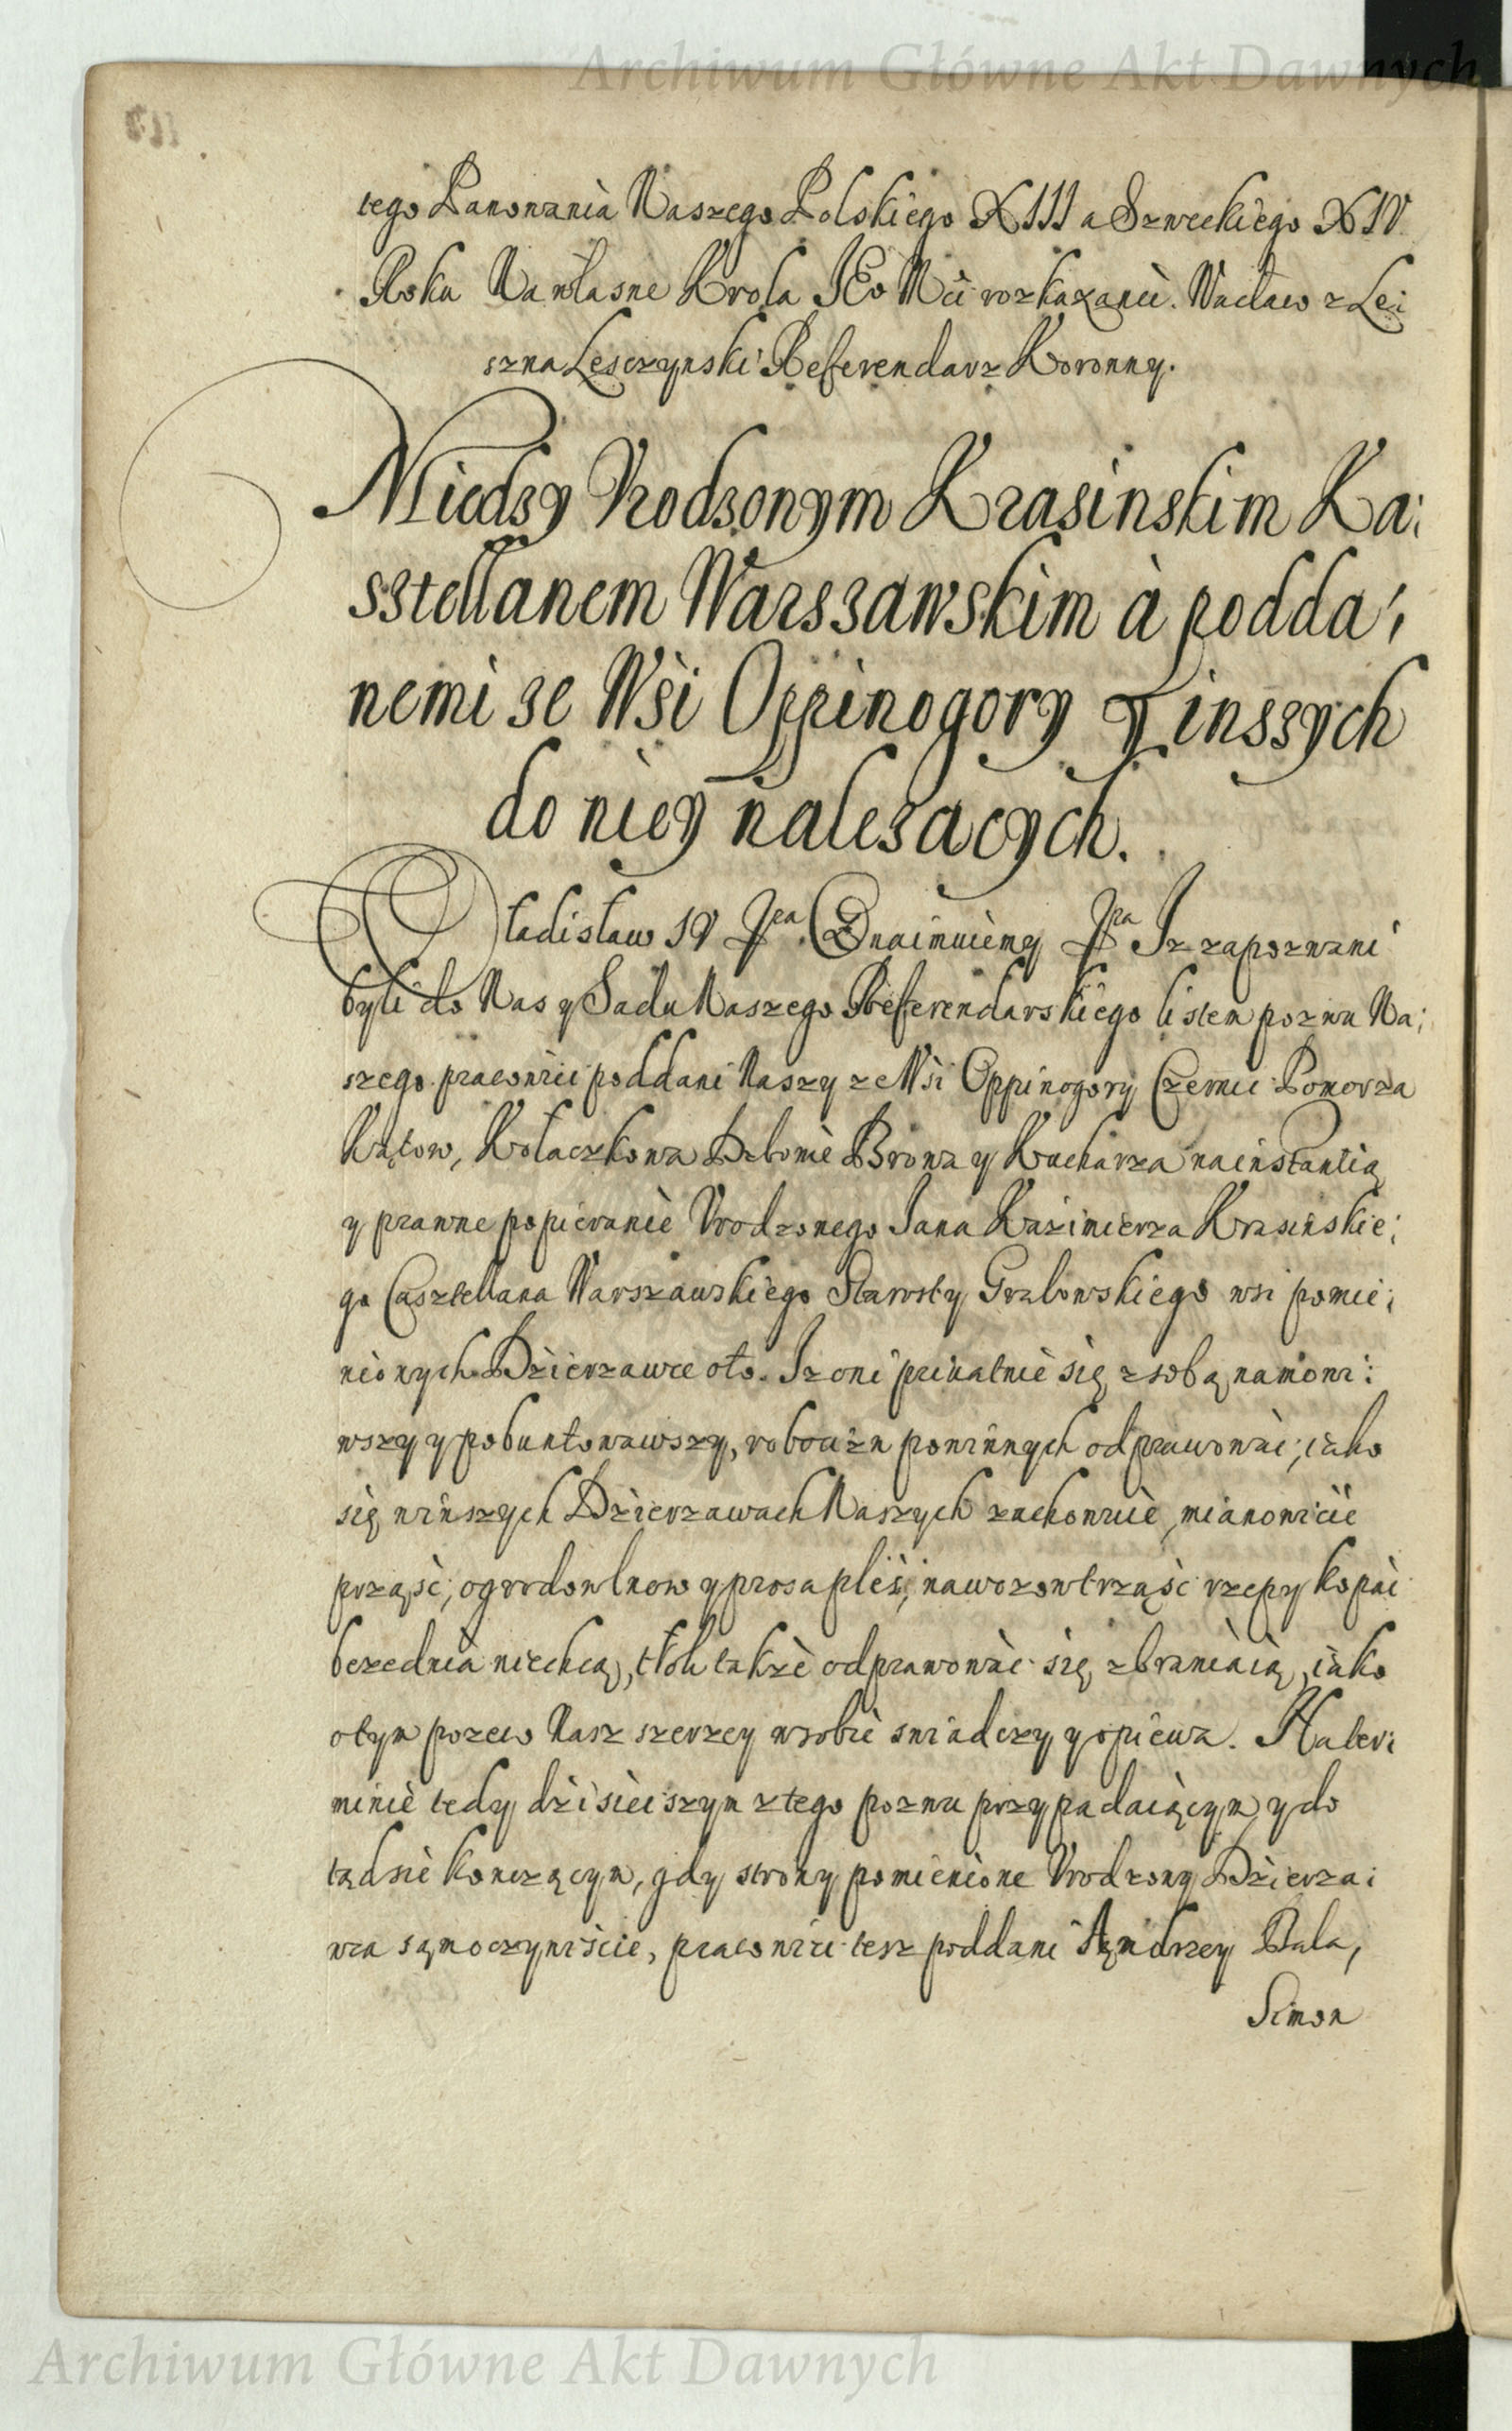 Archiwum Główne Akt Dawnych
tego Panowania Naszego Polskiego XIII a Szweckiego XIV
Roku Na własne Krola JEo Mci rozkazanie. Wacław z Le:
szna Lesczynski Referendarz Koronny.
Miedzy Vrodzonym Krasinskim Ka:
sztellanem Warszawskim à podda:
nemi ze Wsi Oppinogory y inszych
do niey nalezacych.
Władisław IV Zna.imuiemy Iz zapozwani
byli do Nas y Sadu Naszego Referendarskiego listem pozwu Na:
szego pracowici poddani Naszy ze Wsi Oppinogory Czernic Pomorza
Kątow, Kołaczkowa Browa y Kucharza na instantią
y prawne popieranie Vrodzonego Jana Kazimierza Krasinskie:
go Casztellana Warszawskiego Starosty wsi pomie:
nionych Dzierzawce oto. Iz oni priuatnie się z sobą namowi:
wszy y pobuntowawszy, powinnych odprawować, iako
się w inszych Dzierzawach Naszych zachowuie, mianowicie
prząść, ogrodow lnow y prosa pleć, nawozow trząść rzepy kopać
beze dnia niechcą, tłok także odprawować się zbraniaią, iako
o tym pozew Nasz szerzey w sobie swiadczy y opiewa. Na ter:
minie tedy dzisieiszym z tego pozwu przypadaiącym, y do
tąd sie konczącym, gdy strony pomienione Vrodzony Dzierza:
wca sąmoczywiście, pracowici tesz poddani Ąndrzey Bala,
Simon
Archiwum Główne Akt Dawnych